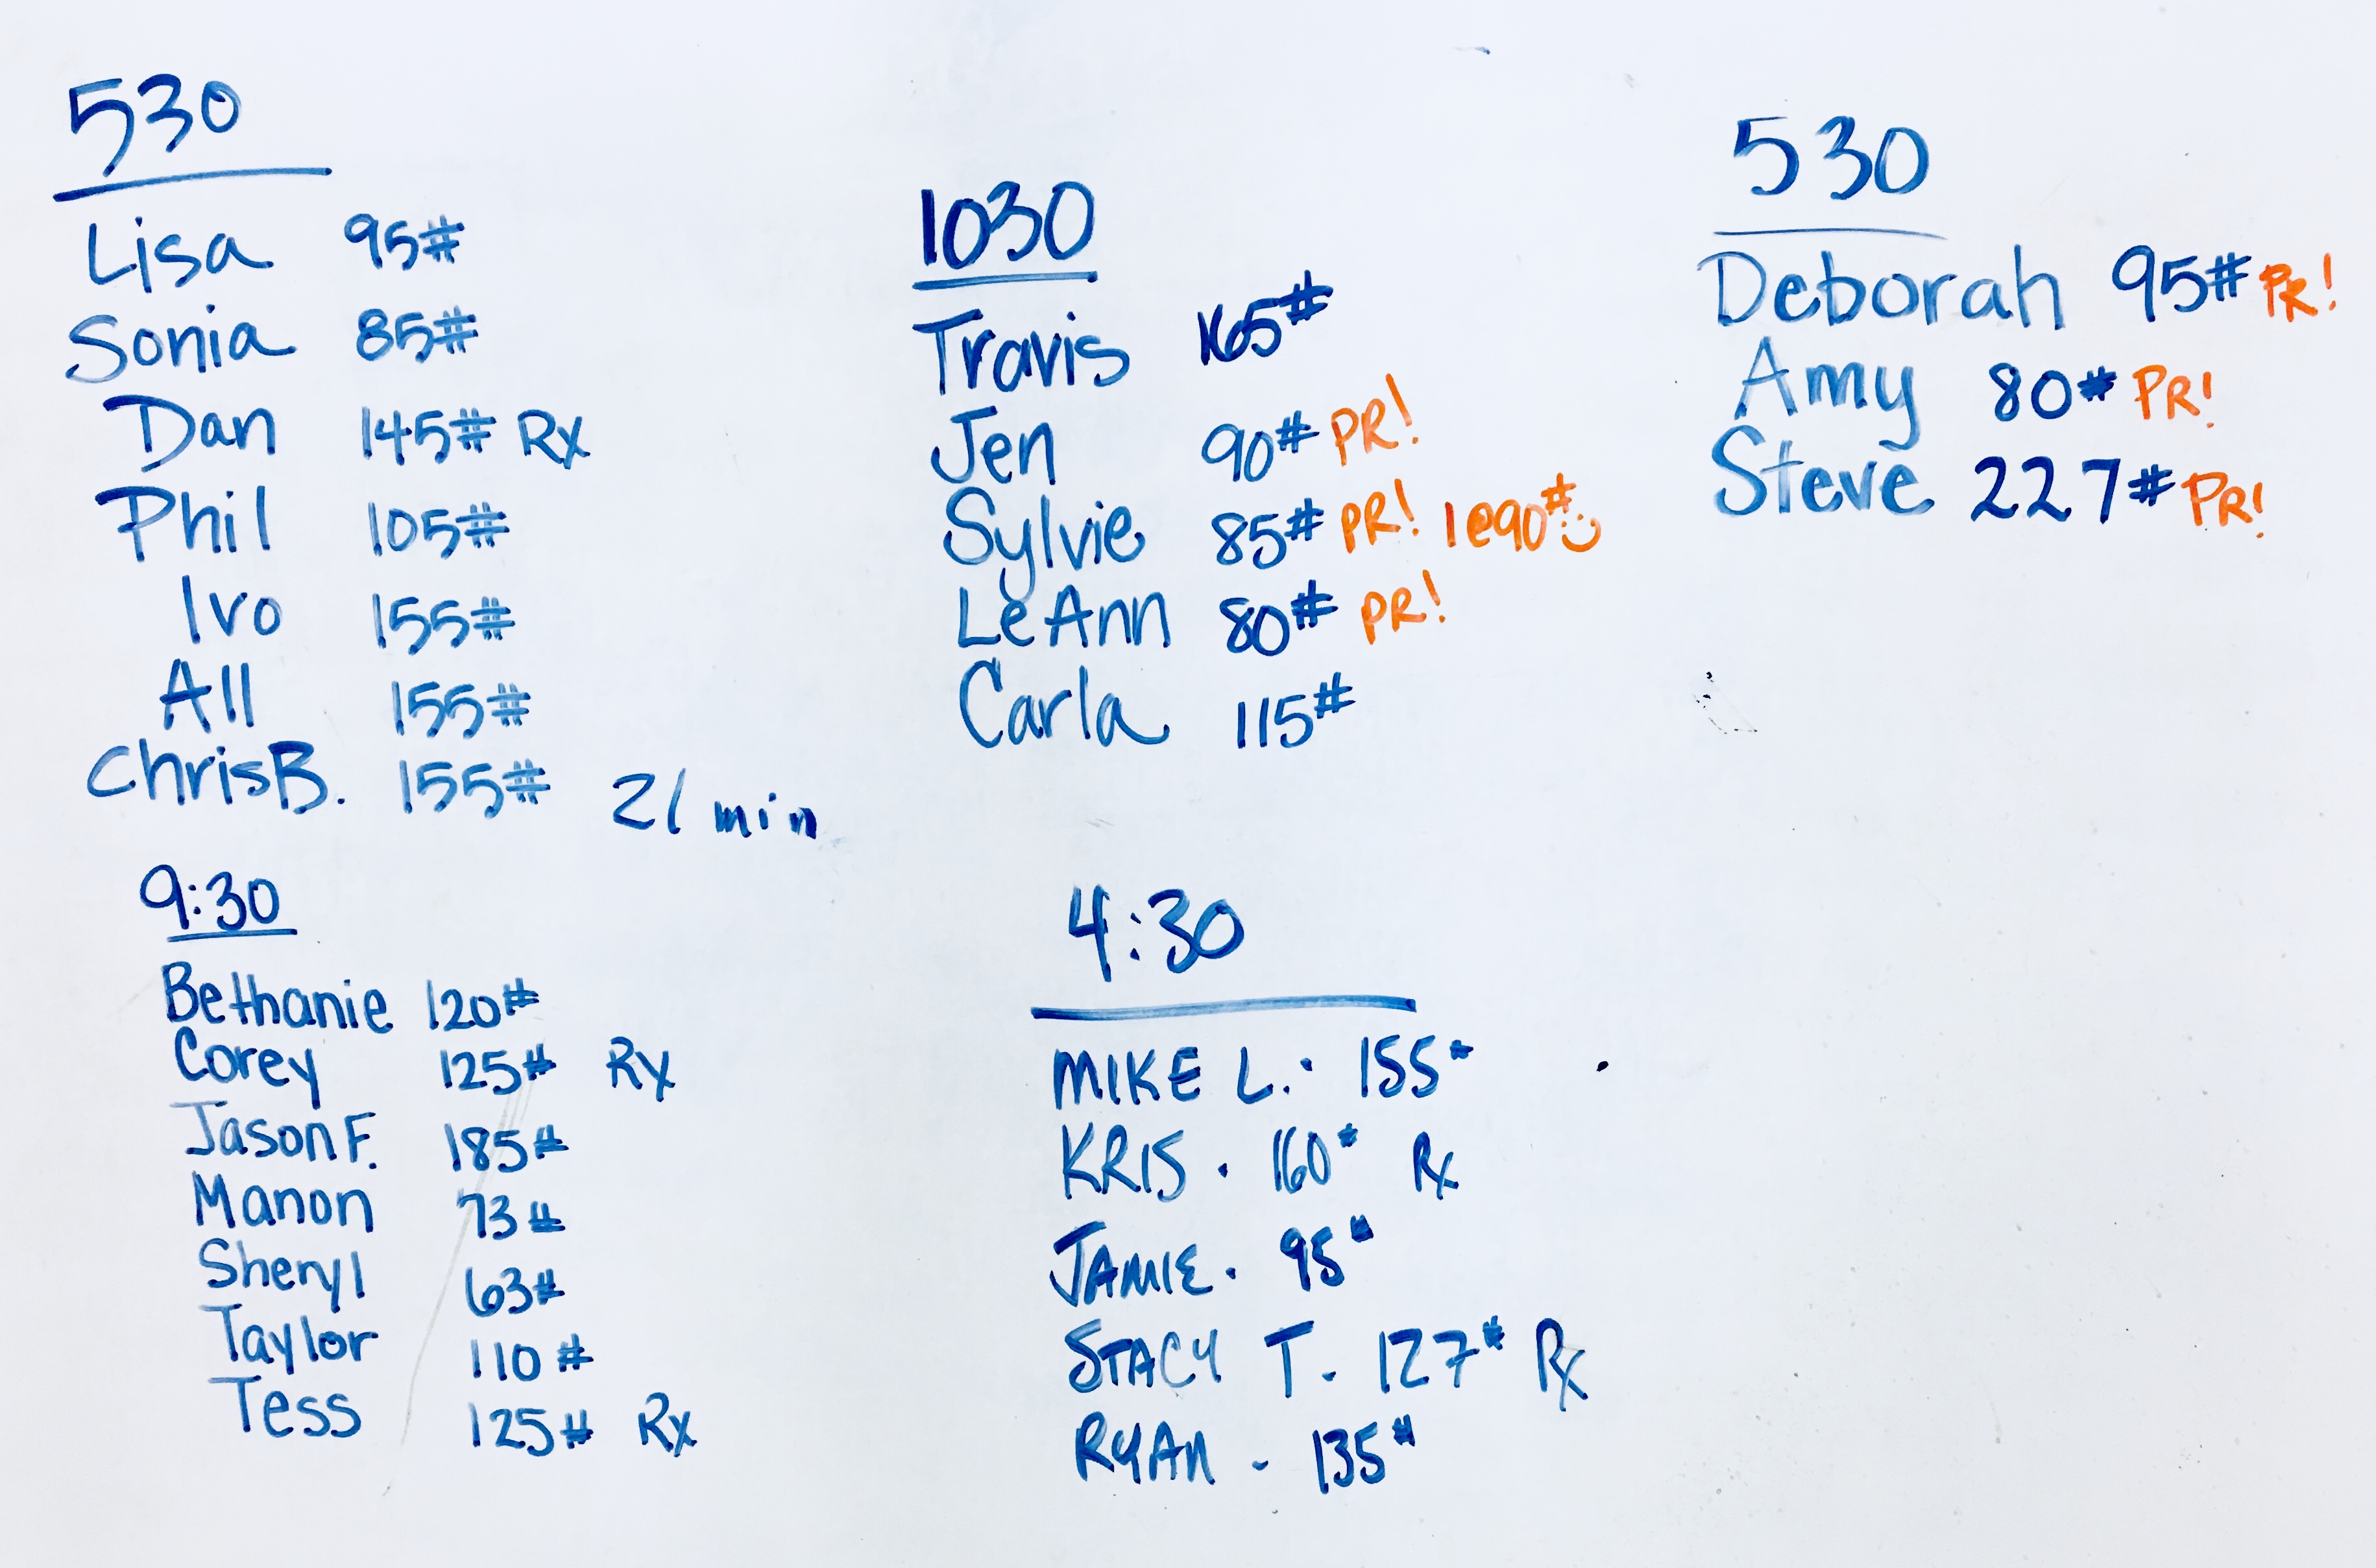 530
Lisa 95#
Sonia 85#
Dan 145# Rx
Phil 105#
Ivo 155#
All 155#
Chris B. 155# 21 min
9:30
Bethanie 120#
Corey 125# Rx
Jason F. 185#
Manon 73#
Sheryl 63#
Taylor 110#
Tess 125# Rx
1030
Travis 165#
Jen 90# PR!
Sylvie 85# PR! 1@90# :)
LeAnn 80# PR!
Carla 115#
4:30
MIKE L. · 155#
KRIS . 160# Rx
JAMIE . 95#
STACY T - 127# Rx
RYAN - 135#
530
Deborah 95# PR!
Amy 80# PR!
Steve 227# PR!